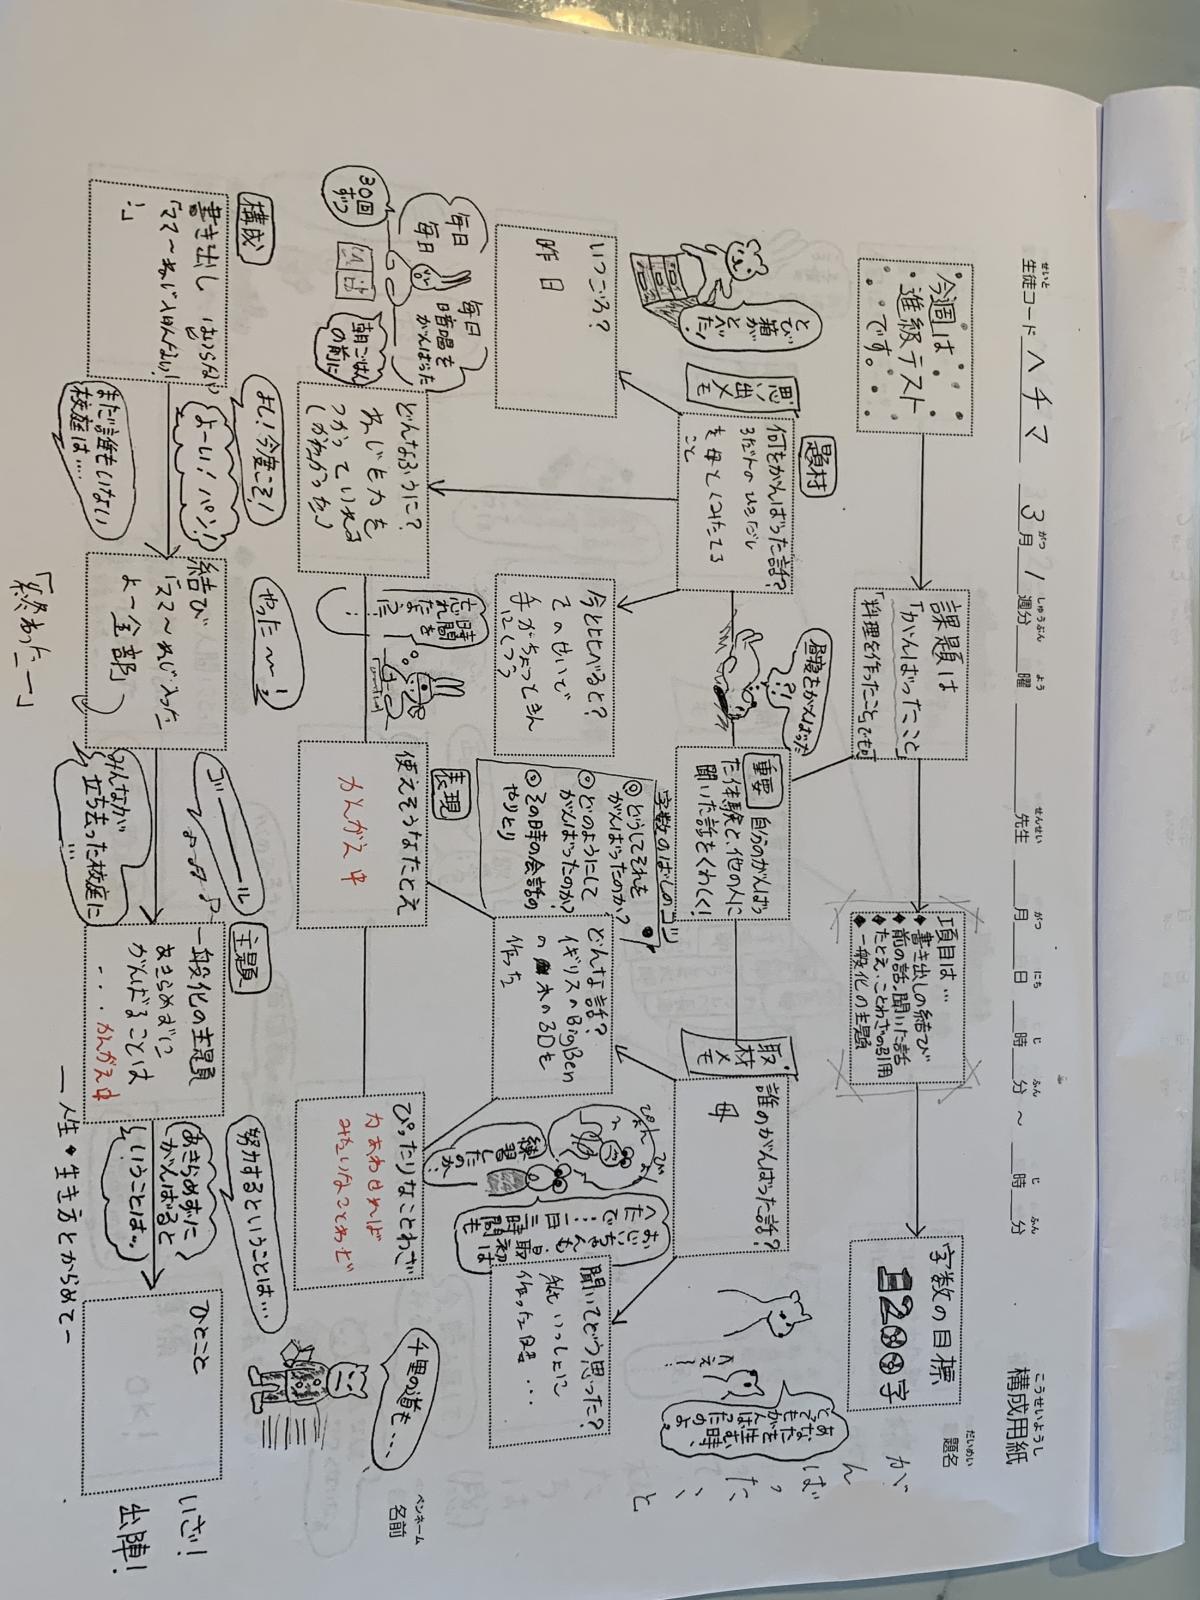 構成用紙
こうせいようし
生徒コード ヘチマ 3月1週分 曜 先生 月 日 時 分 ～ 時 分
せいと がつ しゅうぶん よう せんせい がつ にち じ ふん じ ふん
題名
だいめい
がんばった、こと
今週は
進級テスト
です。
課題は
「がんばったこと」
「料理を作ったこと」でも可
項目は…
◆書き出しの結び
◆前の話、聞いた話
◆たとえ、ことわざの引用
◆一般化の主題
字数の目標
1200字
とび箱が
とべた!
思い出メモ
題材
何をがんばった話?
3だんのひきだし
を母とくみたてる
こと
昼寝をがんばった
?!
重要
自分のがんばっ
た体験と、他の人に
聞いた話をくわしく!
取材メモ
誰のがんばった話?
母
え!
あなたを
生む時、
とてもがんばったのよ。
いつごろ?
昨日
今と比べると?
そのせいで
手がちょっときん
にくつう
字数のばしのコツ
◎どうしてそれを
がんばったのか?
◎どのようにして
がんばったのか?
◎その時の会話の
やりとり
どんな話?
イギリスのBigBen
の木の3Dを
作った
聞いてどう思った?
私いっしょに
作った時…
毎日
毎日
毎日
30回
ずつ
暗唱を
がんばった
朝ごはん
の前に
どんなふうに?
ねじを力を
つかっていれる
(かたかった)
時間を
忘れ
るほど…
表現
使えそうなたとえ
かんがえ中
ぴょん
ぴょん
練習
したのか…
おじいちゃんも
最初は
へたで…
一日三時間も
ぴったりなことわざ
力あわせれば
みたいなことわざ
千里の道も…
ペンネーム
名前
構成
書き出し
「ママ～ねじ入んない!
…」
よし!今度こそ!
よーい!パン!!
まだ誰もいない
校庭は…
結び
「ママ～ねじ入った
よー全部」
「終わったー」
やったー!
ゴーーール
みんなが
立ち去った校庭に
…
主題
一般化の主題
あきらめずに
がんばることは
・・・かんがえ中
努力するということは…
あきらめずに
がんばると
いうことは…
ー人生・生き方とからめてー
ひとこと
いざ!
出陣!